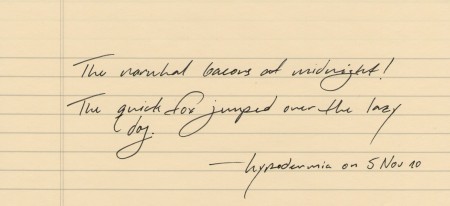 The narwhal bacons at midnight!
The quick fox jumped over the lazy
dog.
— hypodermia on 5 Nov 10